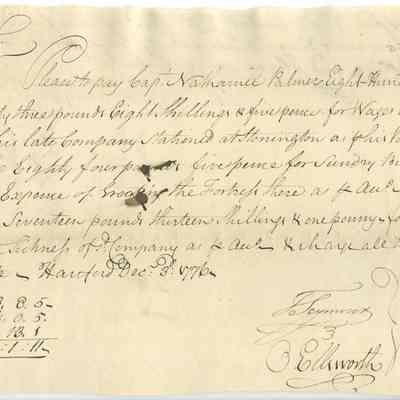 Please to pay Capt Nathaniel Palmer Eight Hund
ty three pounds Eight Shillings & five pence for Wages
his late Company Stationed at Stonington as
Eighty four pounds five pence for Sundry
Expence of Erecting the Fortress there as
Seventeen pounds thirteen Shillings & one penny
Sickness of Company as & charge all
Hartford Decr 3d 1776
8. 5
0. 5.
13. 1
1. 11
T Seymour
O Ellsworth